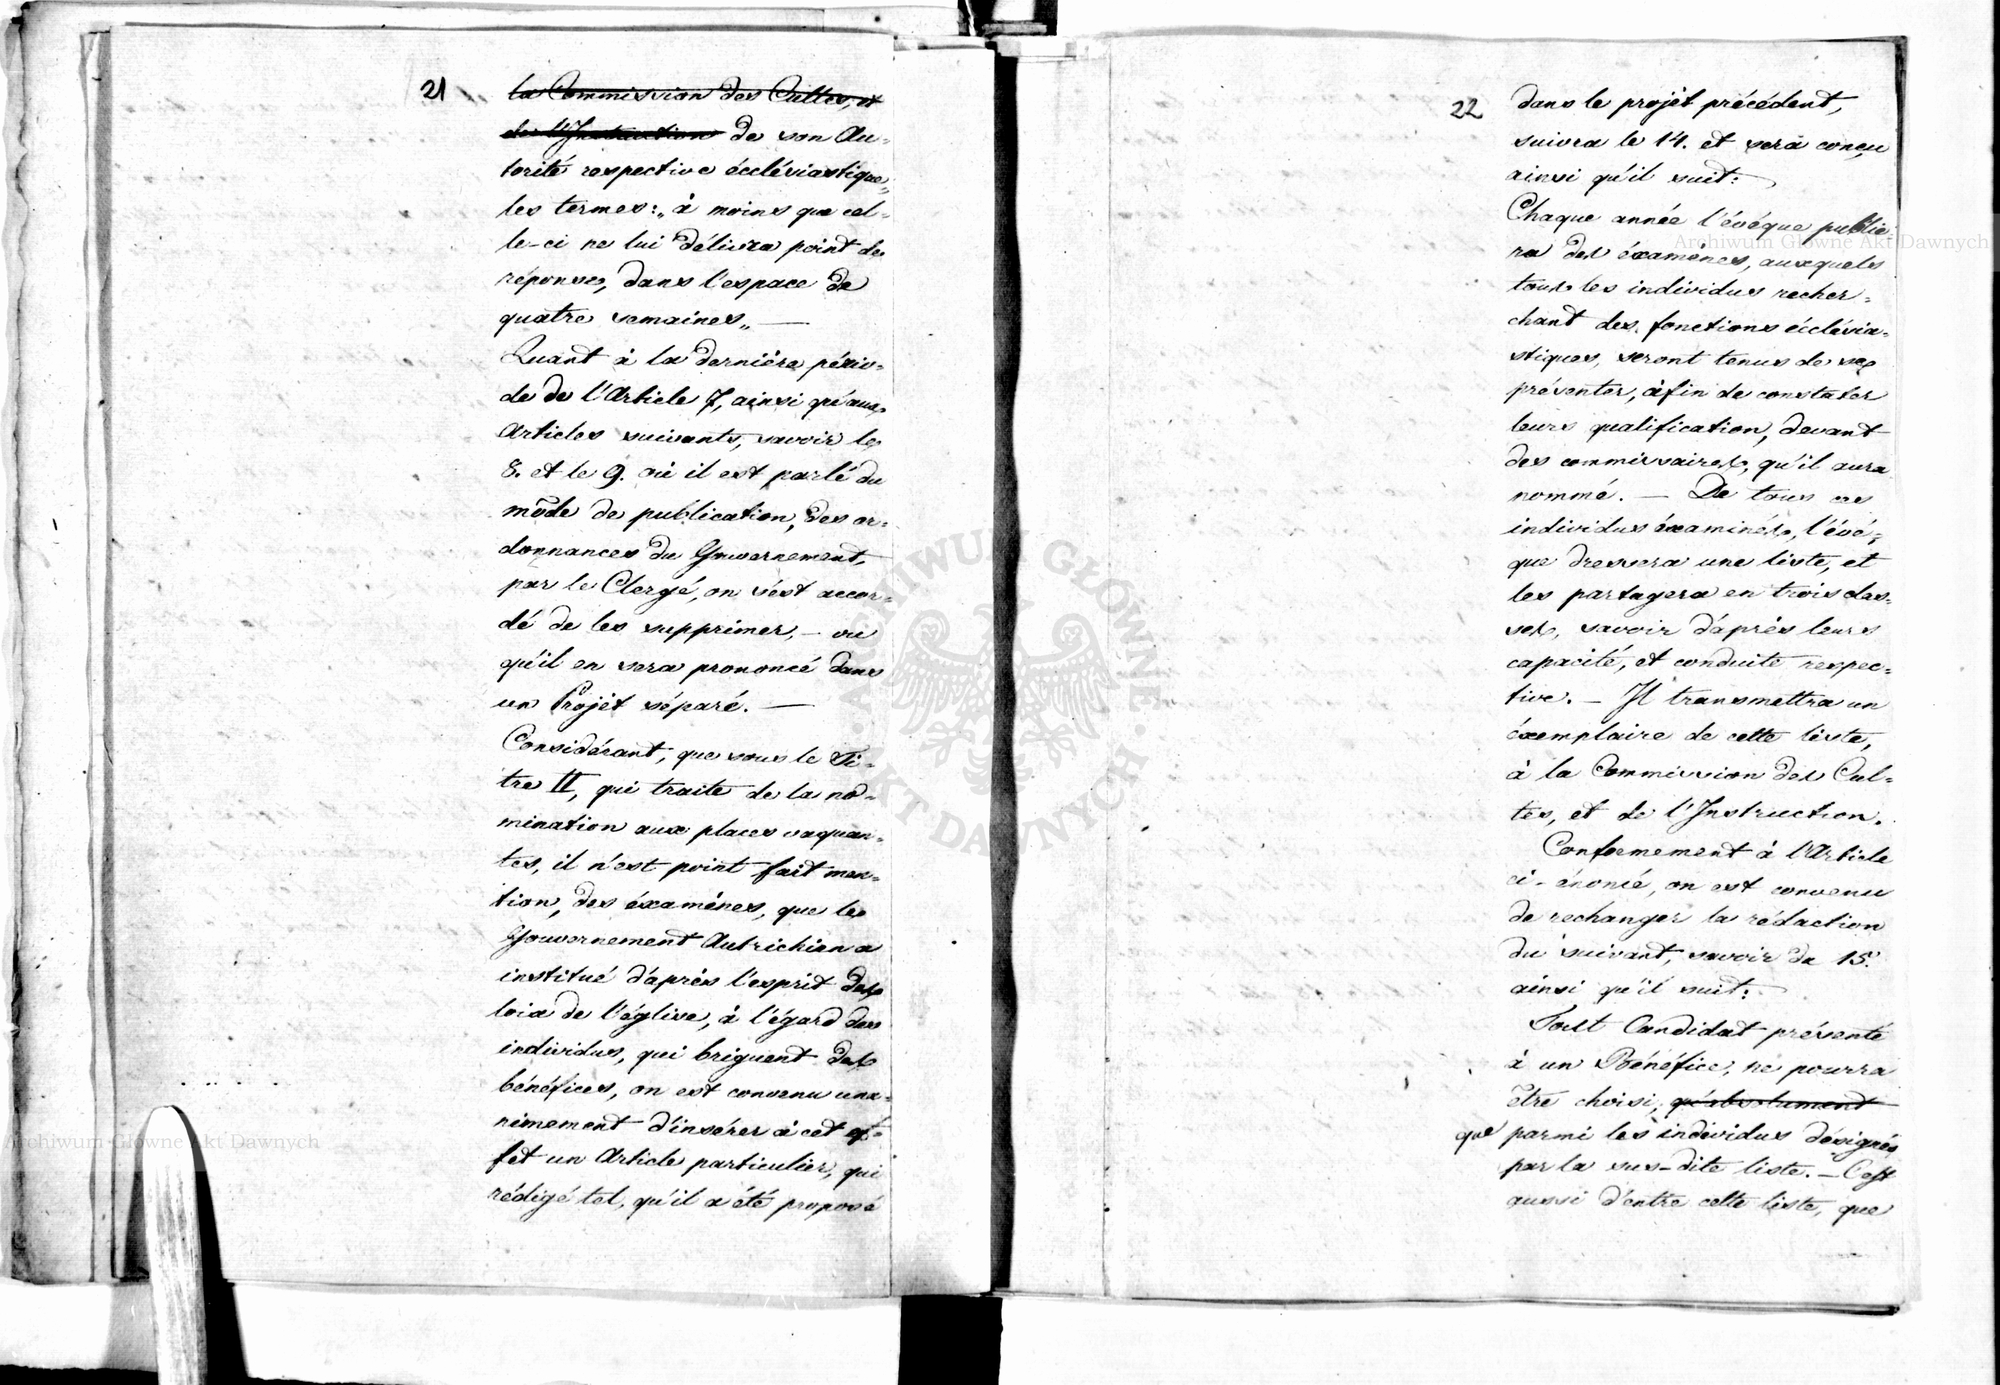 21
la Commission des Cultes, et
de l'Instruction de son Au-
torité respective écclésiastique,
les termes: „à moins que cel-
le-ci ne lui délivra point de
réponse, dans l'espace de
quatre semaines„ —
Quant à la dernière pério-
de de l'Article 7, ainsi qu'aux
Articles suivants, savoir le
8. et le 9. où il est parlé du
môde de publication, des or-
donnances du Gouvernement,
par le Clergé, on s'est accor-
dé de les supprimer, — ou
qu'il en sera prononcé dans
un Projèt séparé. —
Considérant, que sous le Ti-
tre II, qui traite de la no-
mination aux places vaquan-
tes, il n'est point fait men-
tion, des éxamènes, que le
Gouvernement Autrichien a
institué d'après l'esprit des
loix de l'église, à l'égard des
individus, qui briguent des
bénéfices, on est convenu una-
nimement d'insérer à cet ef-
fet un Article particulier, qui
rédigé tel, qu'il a été proposé
22
dans le projèt précédent,
suivra le 14. et sera conçu
ainsi qu'il suit:
Chaque année l'évéque publie
ra des éxamènes, auxquels
tous les individus recher-
chant des fonctions écclésia-
stiques, seront tenus de se
présenter, àfin de constater
leurs qualification, devant
des commissaires, qu'il aura
nommé. — De tous ces
individus éxaminés, l'évé-
que dressera une liste, et
les partagera en trois clas-
ses, savoir d'après leurs
capacité, et conduite respec-
tive. — Il transmettra un
éxemplaire de cette liste,
à la Commission des Cul-
tes, et de l'Instruction.
Conformement à l'Article
ci-énoncé, on est convenu
de rechanger la rédaction
du suivant, savoir du 15.
ainsi qu'il suit:
Tout Candidat présenté
à un Bénéfice, ne pourra
être choisi, qu'absolument
que parmi les individus désignés
par la sus-dite liste. — C'est
aussi d'entre cette liste, que
Archiwum Główne Akt Dawnych
Archiwum Główne Akt Dawnych
ARCHIWUM GŁÓWNE · AKT DAWNYCH ·